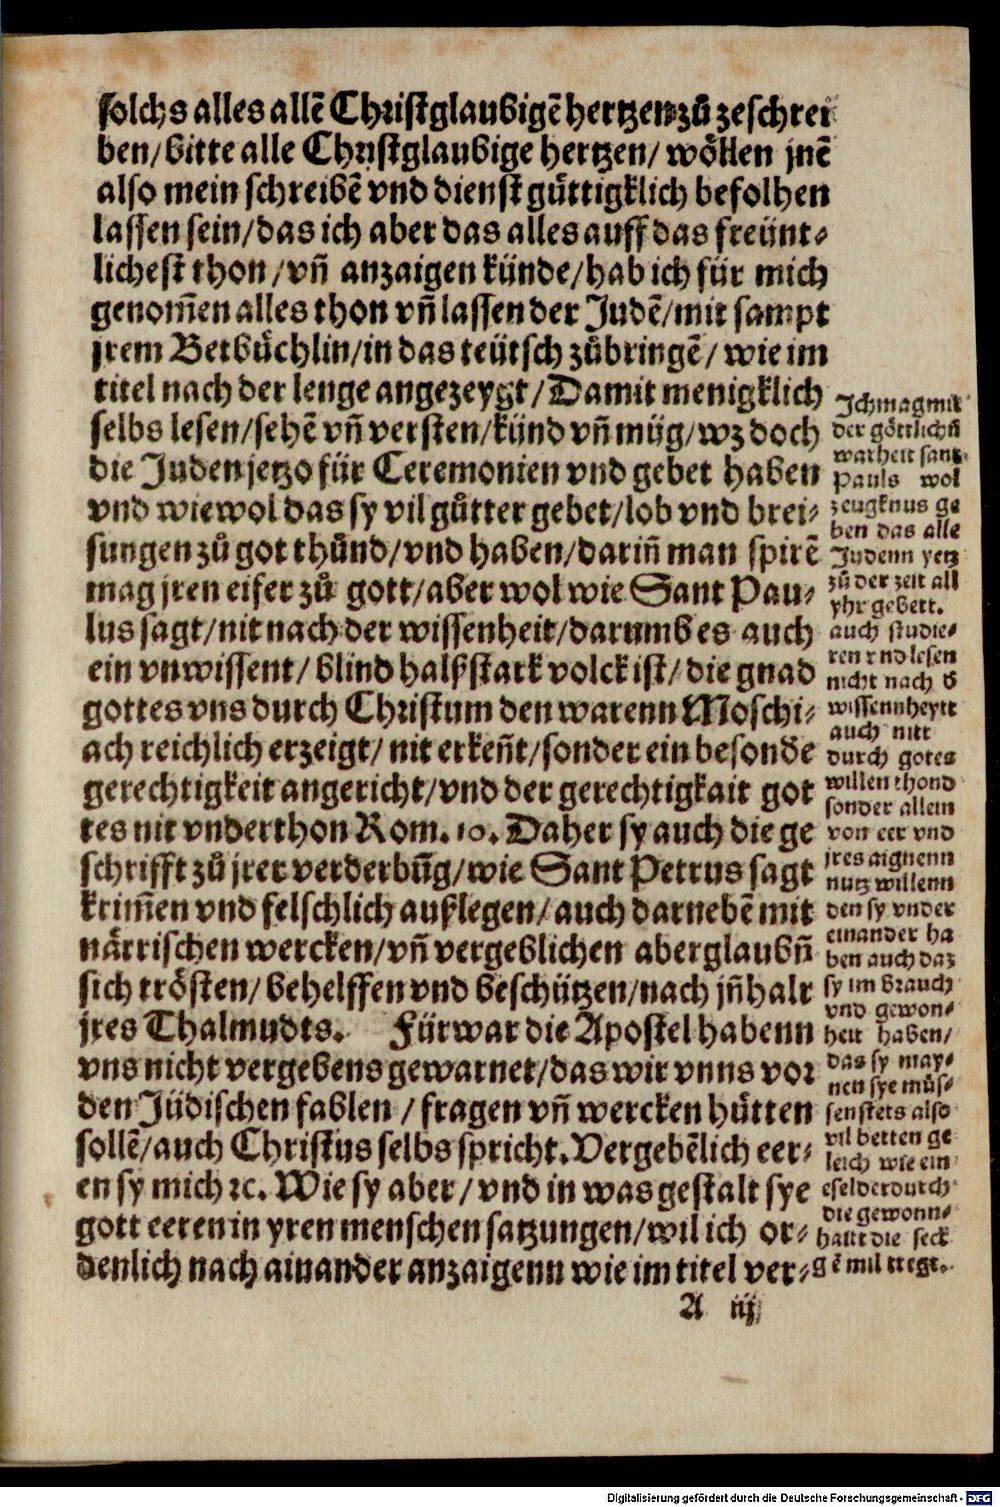 solchs alles allẽ Christglaubigẽ hertzen zů zeschrei
ben/bitte alle Christglaubige hertzen/ wöllen jnẽ
also mein schreibẽ vnd dienst gůttigklich befolhen
lassen sein/das ich aber das alles auff das freünt⸗
lichest thon/vñ anzaigen künde/hab ich für mich
genom̃en alles thon vñ lassen der Judẽ/mit sampt
jrem Betbüchlin/in das teütsch zůbringẽ/ wie im
titel nach der lenge angezeygt/Damit menigklich
selbs lesen/sehẽ vñ versten/künd vñ müg/wz doch
die Juden jetzo für Ceremonien vnd gebet haben
vnd wiewol das sy vil gůtter gebet/lob vnd brei⸗
sungen zů got thůnd/vnd haben/dariñ man spirẽ
mag jren eifer zů gott/aber wol wie Sant Pau⸗
lus sagt/nit nach der wissenheit/darumb es auch
ein vnwissent/ blind halßstark volck ist/ die gnad
gottes vns durch Christum den warenn Moschi⸗
ach reichlich erzeigt/ nit erkeñt/sonder ein besonde
gerechtigkeit angericht/vnd der gerechtigkait got
tes nit vnderthon Rom. 10. Daher sy auch die ge
schrifft zů jrer verderbũg/wie Sant Petrus sagt
krim̃en vnd felschlich außlegen/auch darnebẽ mit
närrischen wercken/vñ vergeblichen aberglaubñ
sich trösten/ behelffen vnd beschützen/nach jñhalt
jres Thalmudts. Fürwar die Apostel habenn
vns nicht vergebens gewarnet/das wir vnns vor
den Jüdischen fablen / fragen vñ wercken hütten
sollẽ/auch Christus selbs spricht. Vergebẽlich eer⸗
en sy mich ꝛc. Wie sy aber/ vnd in was gestalt sye
gott eeren in yren menschen satzungen/wil ich or⸗
denlich nach ainander anzaigenn wie im titel ver⸗
A iij
Ich mag mit
der göttlichñ
warheit sant
Pauls wol
zeugknus ge
ben das alle
Judenn yetz
zů der zeit all
yhr gebett.
auch studie⸗
ren vnd lesen
nicht nach d̕
wissennheytt
auch nitt
durch gotes
willen thond
sonder allein
von eer vnd
jres aignenn
nutz willenn
den sy vnder
einander ha
ben auch daz
sy im brauch
vnd gewon⸗
heit haben/
das sy may⸗
nen sye müs⸗
sen stets also
vil betten ge
leich wie ein
esel der durch
die gewonn⸗
hait die seck
gẽ mil tregt.
Digitalisierung gefördert durch die Deutsche Forschungsgemeinschaft - DFG